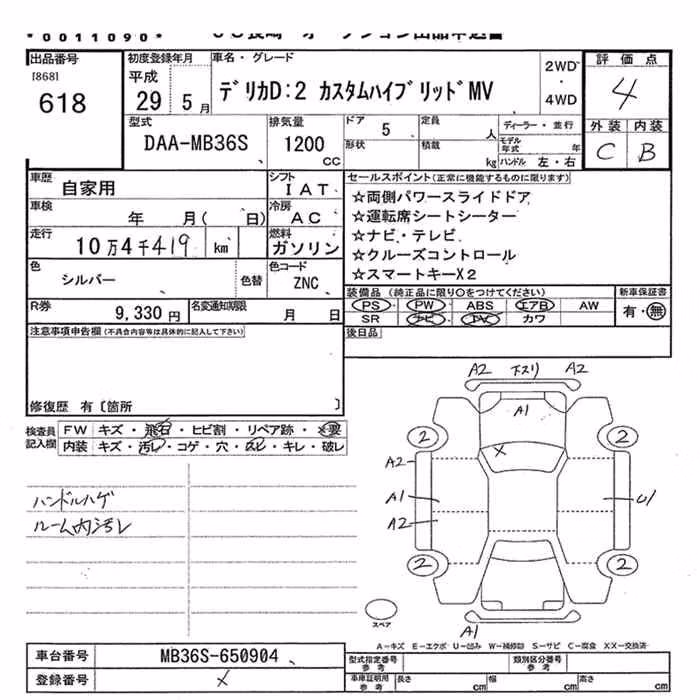 *0011090*
出品番号
[868]
618
初度登録年月
平成
29 5月
車名・グレード
デリカD:2 カスタムハイブリッドMV
2WD
・
4WD
評価点
4
外装 内装
C B
型式
DAA-MB36S
排気量
1200
cc
ドア 5
形状
定員 人
積載 kg
ディーラー・並行
モデル年式 年
ハンドル 左・右
車歴 自家用
シフト
IAT
セールスポイント(正常に機能するものに限ります)
☆両側パワースライドドア
☆運転席シートシーター
☆ナビ・テレビ
☆クルーズコントロール
☆スマートキーX2
車検 年 月( 日)
冷房
AC
走行 10万4千419 km
燃料
ガソリン
色 シルバー 色替
色コード
ZNC
R券 9,330円
名変通知期限 月 日
装備品(純正品に限り○をつけてください)
PS PW ABS エアB AW
SR ナビ TV カワ
新車保証書
有・無
注意事項申告欄(不具合内容等は具体的に記入して下さい)
後日品
修復歴 有〔箇所 〕
検査員記入欄
FW キズ・飛石・ヒビ割・リペア跡・×要
内装 キズ・汚レ・コゲ・穴・スレ・キレ・破レ
ハンドルハゲ
ルーム内汚レ
A2 下スリ A2
A1
2 X 2
A2
A1 U1
A2
2 2
スペア
A1
A-キズ E-エクボ U-凹み W-補修跡 S-サビ C-腐食 XX-交換済
車台番号 MB36S-650904
登録番号 ×
型式指定番号
参考
類別区分番号
参考
車庫証明用
参考
長さ cm 幅 cm 高さ cm